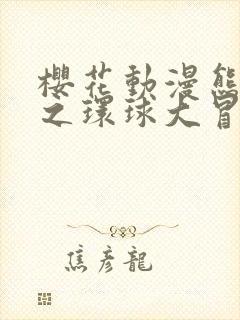 櫻花動漫熊
之環球大冒
焦彥龍